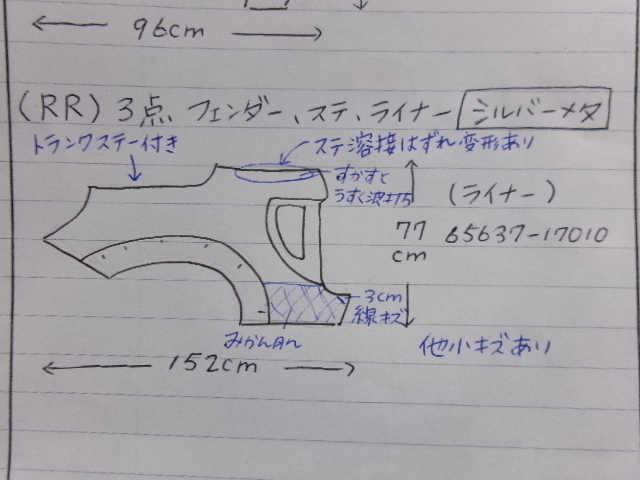 96cm
(RR) 3点、フェンダー、ステ、ライナー シルバーメタ
トランクステー付き
ステ溶接はずれ変形あり
すかすと
うすく波打ち
(ライナー)
77
cm
65637-17010
3cm
線キズ
みかん肌
他小キズあり
152cm